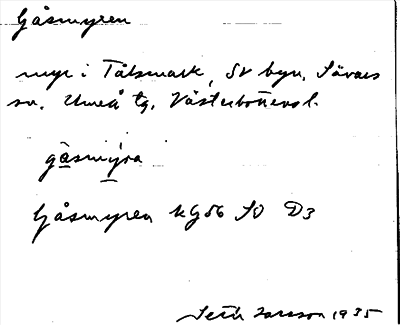 Gåsmyren
myr i Tålsmark, SV byn, Sävars
sn. Umeå tg. Västerbottens l.
gåsmyra
Gåsmyren kG56 SO D3
Seth Larsson 1935